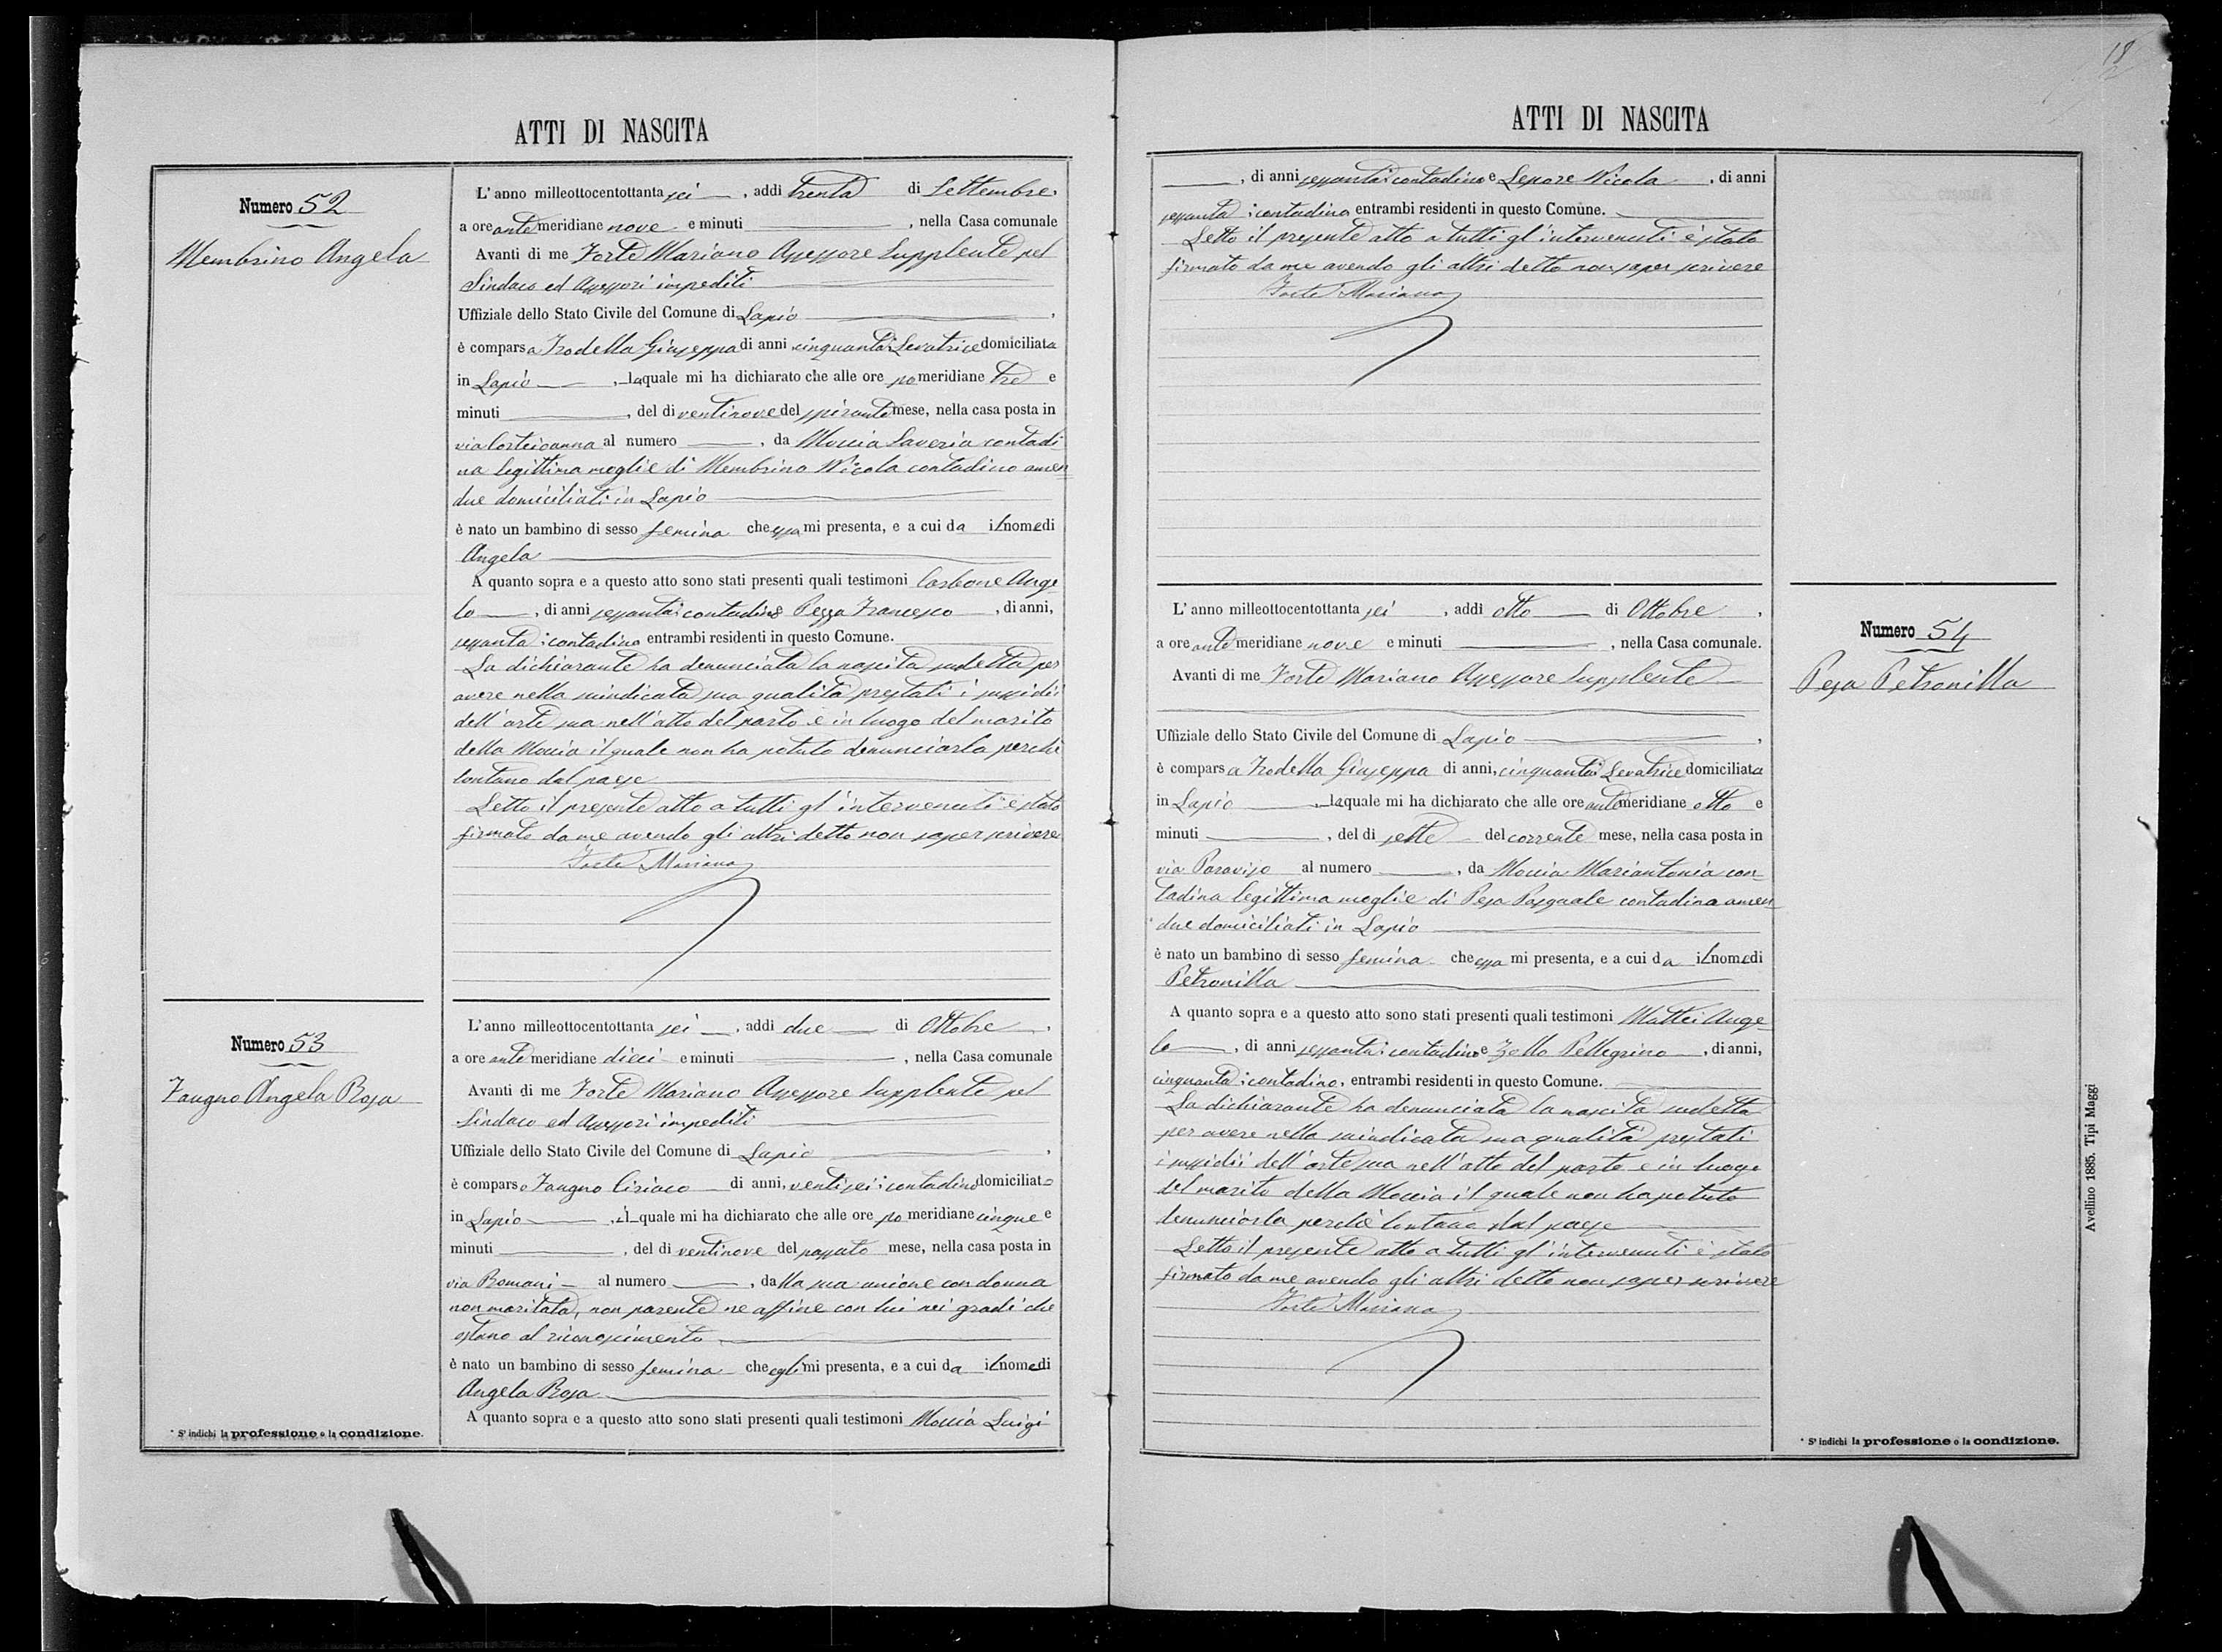 18
2
ATTI DI NASCITA
Numero 52
Membrino Angela
L'anno milleottocentottanta sei, addì trenta di Settembre,
a ore antemeridiane nove e minuti , nella Casa comunale
Avanti di me Forte Mariano Assessore Supplente pel
Sindaco ed Assessori impediti
Uffiziale dello Stato Civile del Comune di Lapio,
è comparsa Trodella Giuseppa di anni cinquanta: Levatrice domiciliata
in Lapio, la quale mi ha dichiarato che alle ore pomeridiane tre e
minuti , del dì ventinove del spirante mese, nella casa posta in
via al numero , da Moccia Saveria contadi
na legittima moglie di Membrino Nicola contadino amen
due domiciliati in Lapio
è nato un bambino di sesso femina che essa mi presenta, e a cui da il nome di
Angela
A quanto sopra e a questo atto sono stati presenti quali testimoni Carbone Ange
lo, di anni sessanta: contadino e Pezza Francesco, di anni,
sessanta: contadino entrambi residenti in questo Comune.
La dichiarante ha denunciata la nascita sudetta per
avere nella suindicata sua qualità prestati i sussidii
dell'arte sua nell'atto del parto e in luogo del marito
della Moccia il quale non ha potuto denunciarla perchè
lontano dal paese
Letto il presente atto a tutti gl'intervenuti è stato
firmato da me avendo gli altri detto non saper scrivere
Forte Mariano
Numero 53
Faugno Angela Rosa
L'anno milleottocentottanta sei, addì due di Ottobre,
a ore antemeridiane dieci e minuti , nella Casa comunale
Avanti di me Forte Mariano Assessore Supplente pel
Sindaco ed Assessori impediti
Uffiziale dello Stato Civile del Comune di Lapio,
è comparso Faugno Ciriaco di anni, ventisei: contadino domiciliato
in Lapio, il quale mi ha dichiarato che alle ore pomeridiane cinque e
minuti , del dì ventinove del passato mese, nella casa posta in
via Romani al numero , dalla sua unione con donna
non maritata, non parente ne affine con lui nei gradi che
ostano al riconoscimento
è nato un bambino di sesso femina che egli mi presenta, e a cui da il nome di
Angela Rosa
A quanto sopra e a questo atto sono stati presenti quali testimoni Moccia Luigi
* S' indichi la professione o la condizione.
ATTI DI NASCITA
, di anni sessanta: contadino e Lepore Nicola, di anni
sessanta: contadino entrambi residenti in questo Comune.
Letto il presente atto a tutti gl'intervenuti è stato
firmato da me avendo gli altri detto non saper scrivere
Forte Mariano
Numero 54
Pesa Petronilla
L'anno milleottocentottanta sei, addì otto di Ottobre,
a ore antemeridiane nove e minuti , nella Casa comunale.
Avanti di me Forte Mariano Assessore Supplente
Uffiziale dello Stato Civile del Comune di Lapio,
è comparsa Trodella Giuseppa di anni, cinquanta: Levatrice domiciliata
in Lapio, la quale mi ha dichiarato che alle ore antemeridiane otto e
minuti , del dì sette del corrente mese, nella casa posta in
via Paraviso al numero , da Moccia Mariantonia con
tadina legittima moglie di Pesa Pasquale contadino amen
due domiciliati in Lapio
è nato un bambino di sesso femina che essa mi presenta, e a cui da il nome di
Petronilla
A quanto sopra e a questo atto sono stati presenti quali testimoni Mattei Ange
lo, di anni sessanta: contadino e Zollo Pellegrino, di anni,
cinquanta: contadino, entrambi residenti in questo Comune.
La dichiarante ha denunciata la nascita sudetta
per avere nella suindicata sua qualità prestati
i sussidii dell'arte sua nell'atto del parto e in luogo
del marito della Moccia il quale non ha potuto
denunciarla perchè lontano dal paese
Letto il presente atto a tutti gl'intervenuti è stato
firmato da me avendo gli altri detto non saper scrivere
Forte Mariano
* S' indichi la professione o la condizione.
Avellino 1885. Tipi Maggi